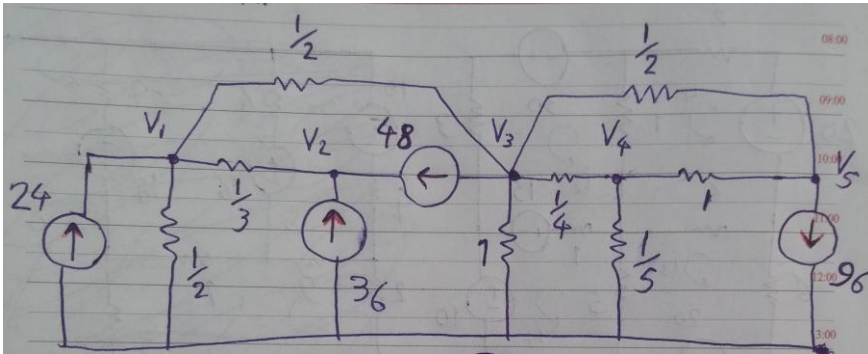 1/2
1/2
08:00
09:00
V1
V2
48
V3
V4
10:00
V5
24
1/3
1/4
1
11:00
1/2
36
1
1/5
96
12:00
3:00